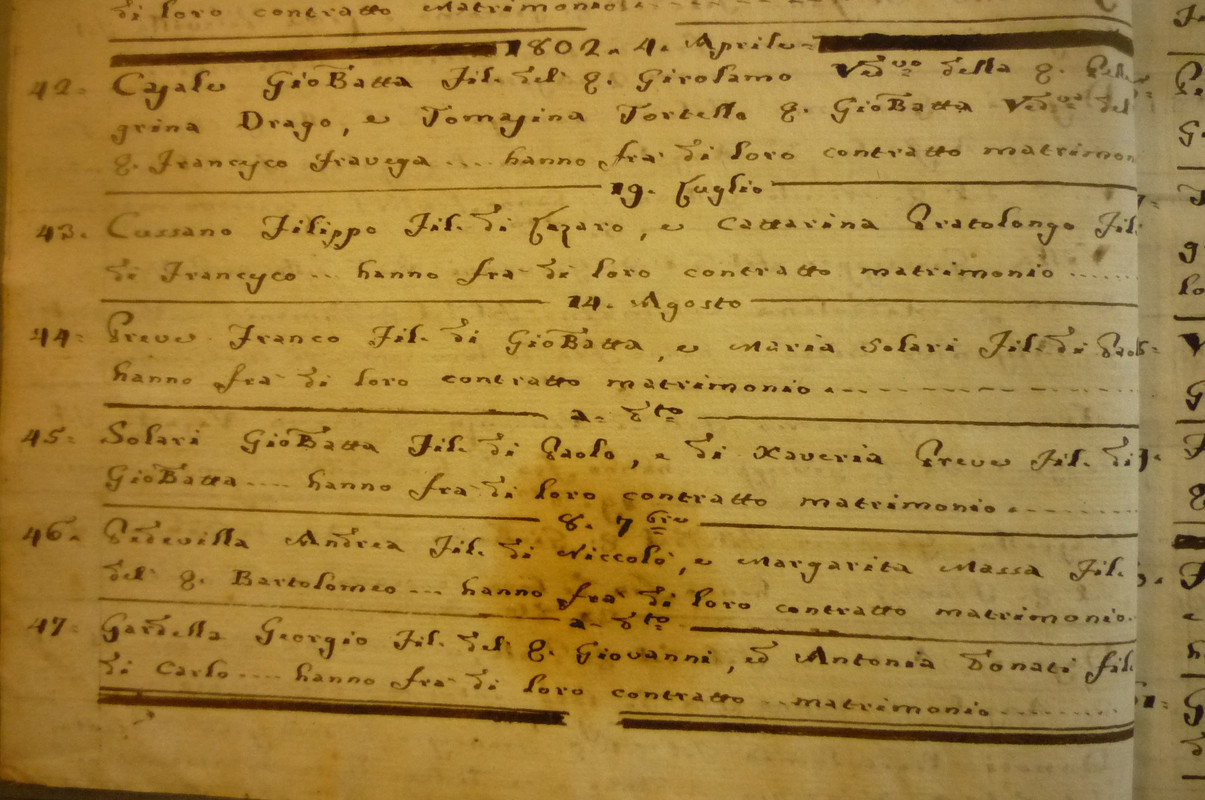 di loro contratto Matrimonio
1802. 4. Aprile
42. Casale GioBatta Fil. del q. Girolamo Ved.vo della q. Pele=
grina Drago, e Tomasina Tortello q. GioBatta Ved.va del
q. Francesco Fravega .... hanno fra di loro contratto matrimon
19. Luglio
43. Cussano Filippo Fil. di Lazaro, e Cattarina Pratolongo Fil.
di Francesco ... hanno fra di loro contratto matrimonio
14. Agosto
44: Preve Franco Fil. di GioBatta, e Maria Solari Fil. di Paolo
hanno fra di loro contratto matrimonio
a. d.to
45: Solari GioBatta Fil. di Paolo, e di Xaveria Preve Fil. di
GioBatta .... hanno fra di loro contratto matrimonio
8. 7bre
46. Pedevilla Andrea Fil. di Niccolò, e Margarita Massa Fil.
del q. Bartolomeo ... hanno fra di loro contratto matrimonio.
a. d.to
47: Gardella Georgio Fil. del q. Giovanni, ed Antonia Donati fil.
di Carlo .... hanno fra di loro contratto matrimonio